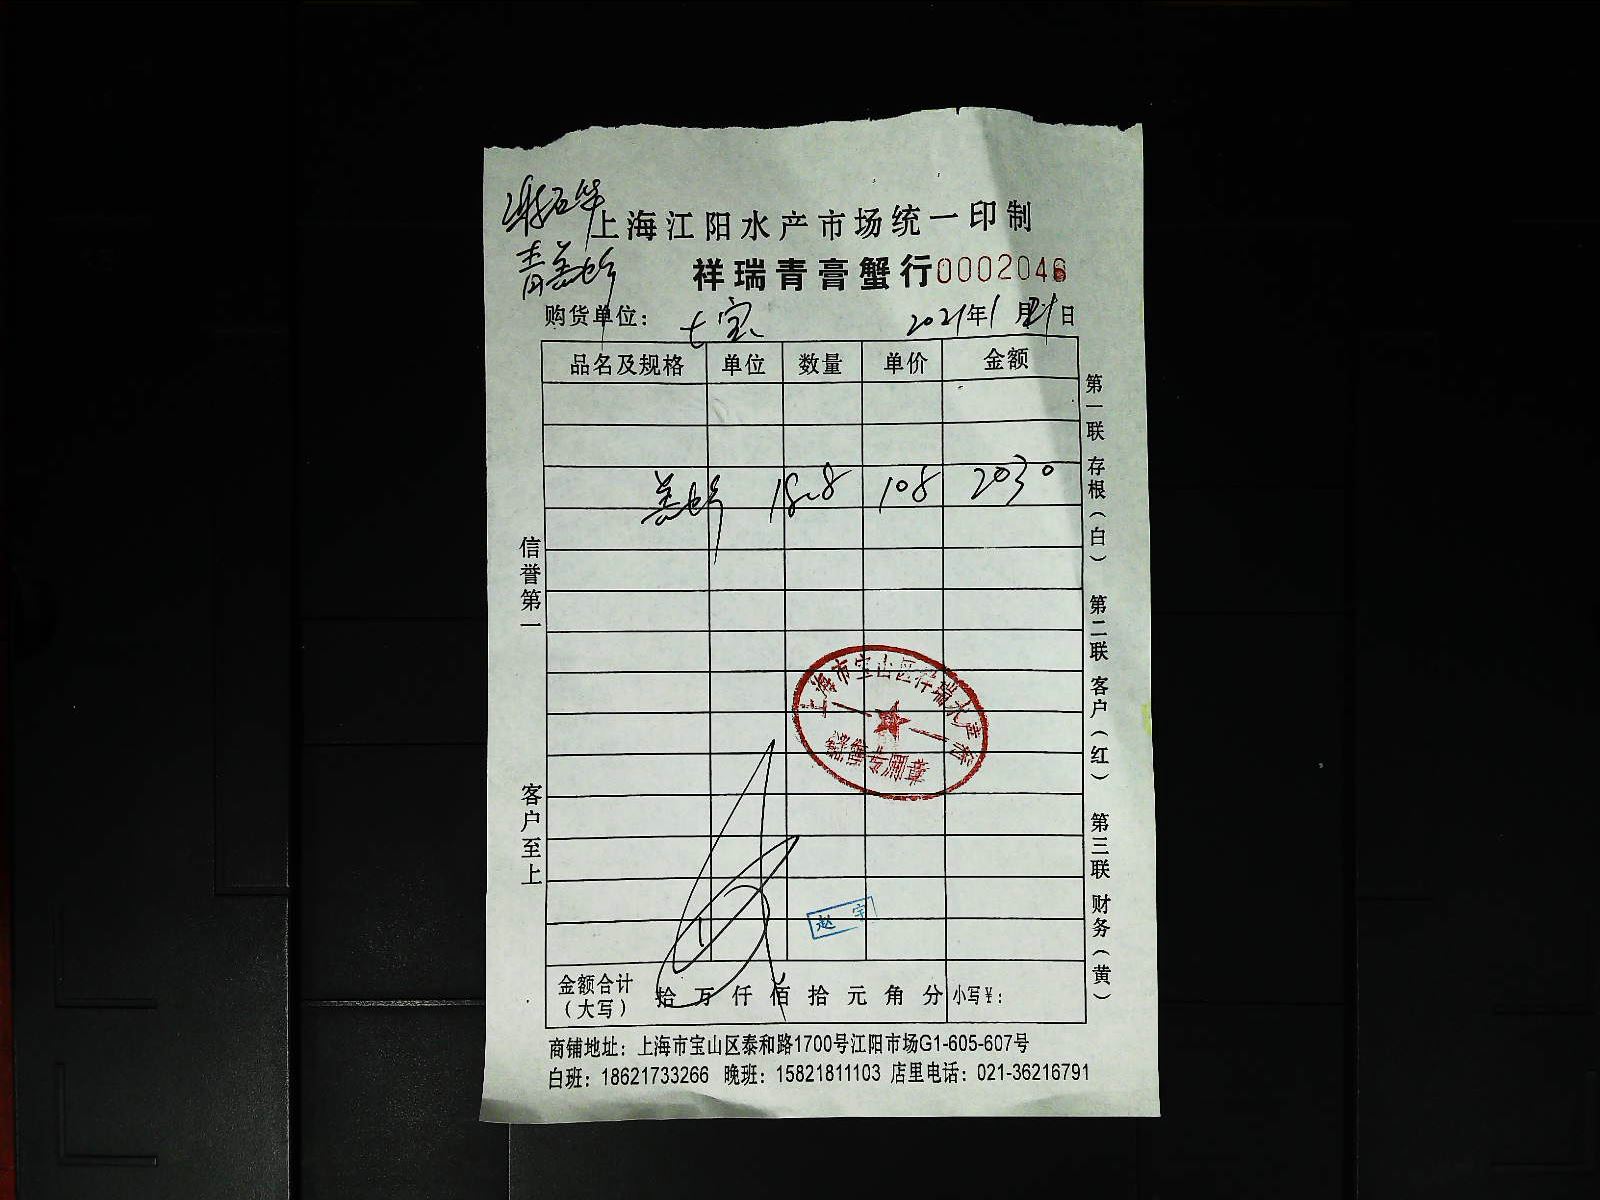 上海江阳水产市场统一印制
祥瑞青膏蟹行 0002046
购货单位： 七宝 2021年1月21日
品名及规格 单位 数量 单价 金额
18.8 108 2030
信誉第一
客户至上
第一联 存根（白） 第二联 客户（红） 第三联 财务（黄）
上海市宝山区祥瑞水产行
销售专用章
赵宇
金额合计（大写） 拾 万 仟 佰 拾 元 角 分 小写¥：
商铺地址：上海市宝山区泰和路1700号江阳市场G1-605-607号
白班：18621733266 晚班：15821811103 店里电话：021-36216791